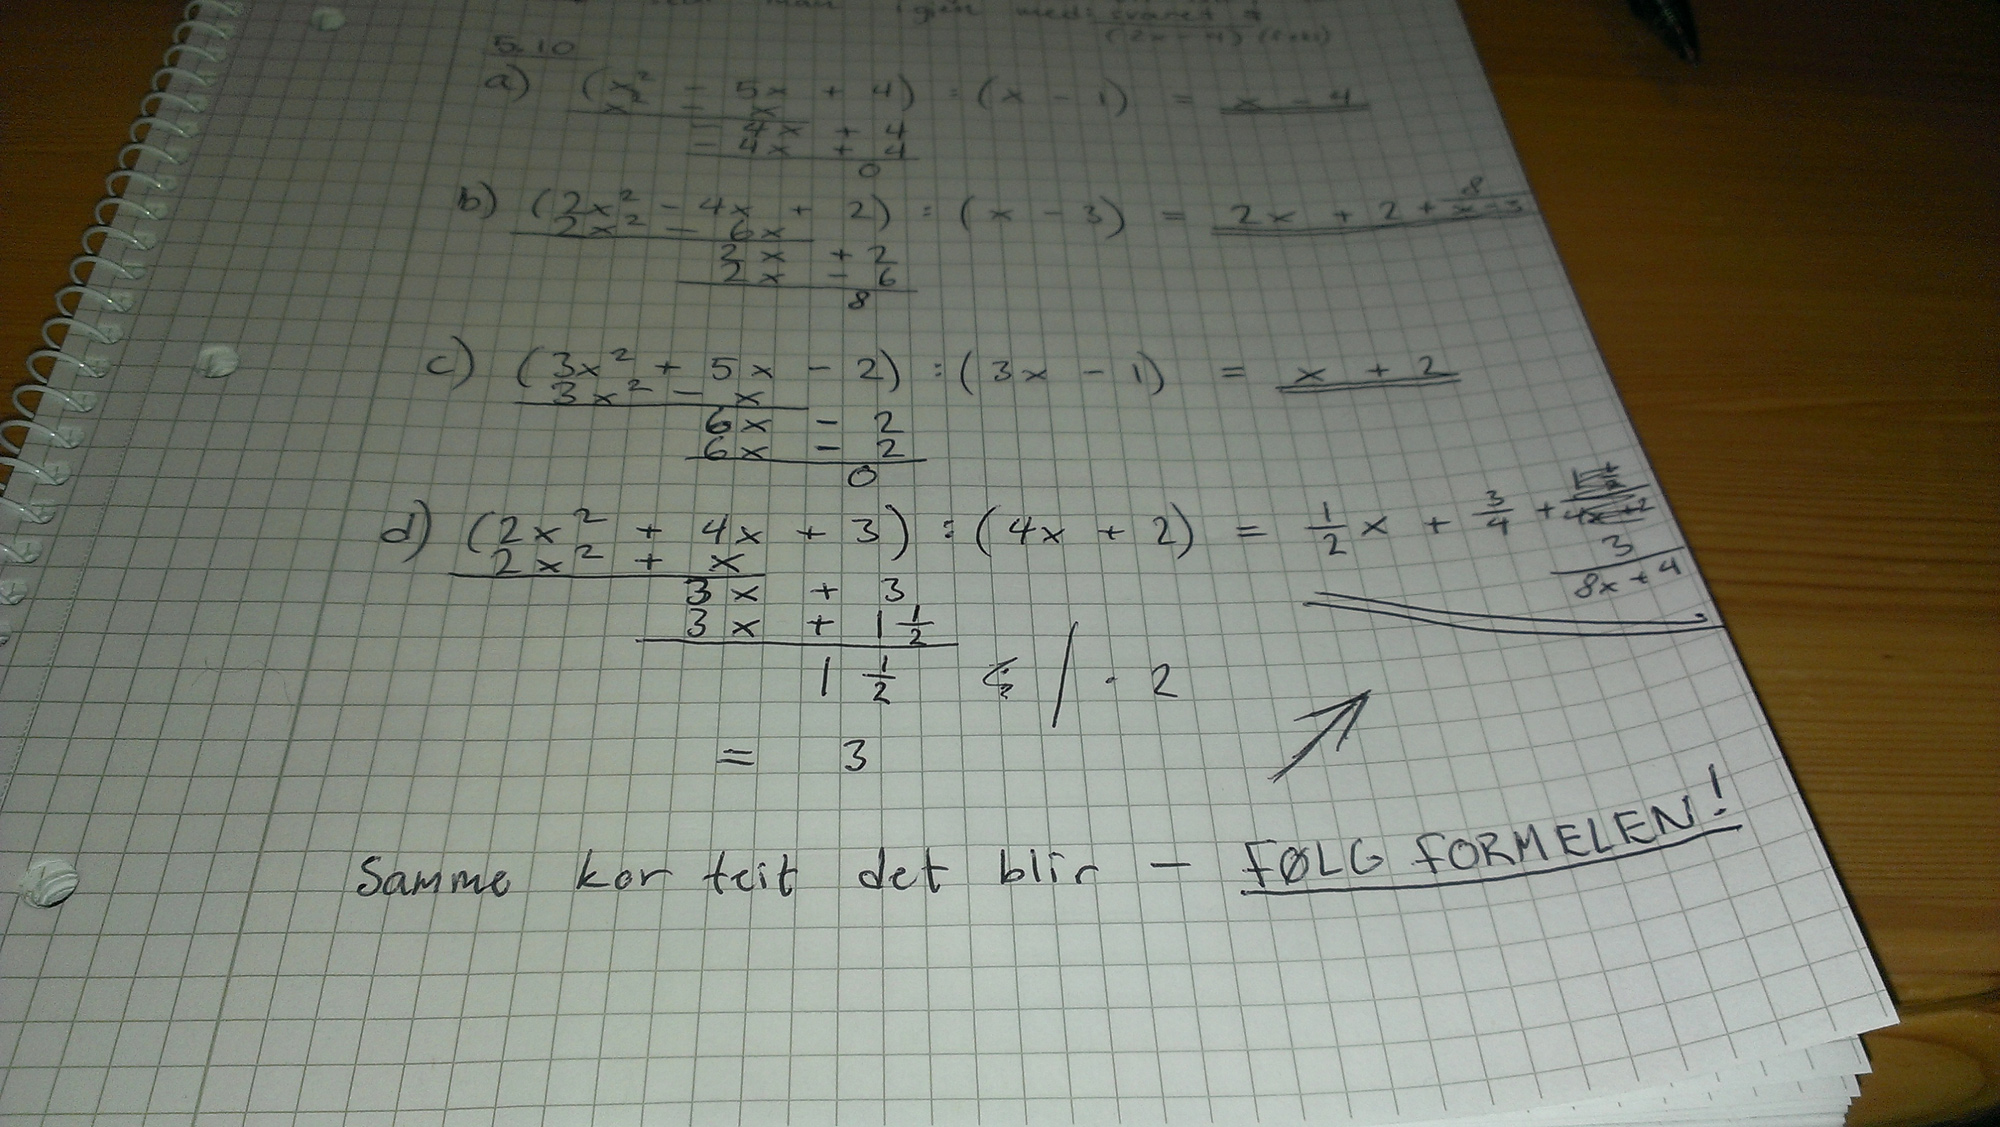 man igjen med: svaret +
5.10
a) (x² - 5x + 4) : (x - 1) = x - 4
x² - x
- 4x + 4
- 4x + 4
0
b) (2x² - 4x + 2) : (x - 3) = 2x + 2 + 8/(x - 3)
2x² - 6x
2x + 2
2x - 6
8
c) (3x² + 5x - 2) : (3x - 1) = x + 2
3x² - x
6x - 2
6x - 2
0
d) (2x² + 4x + 3) : (4x + 2) = 1/2 x + 3/4 + 3/(8x + 4)
2x² + x
3x + 3
3x + 1 1/2
1 1/2 / · 2
= 3
Samme kor teit det blir - FØLG FORMELEN!